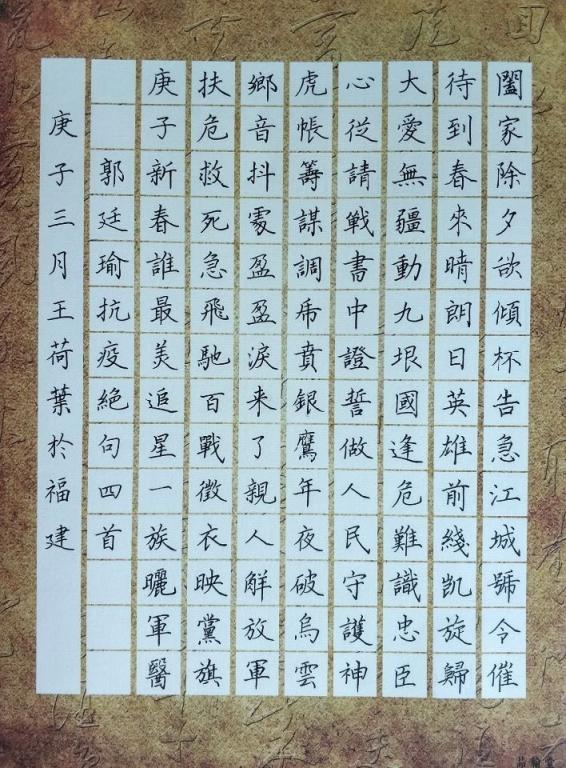 闔家除夕欲傾杯告急江城號令催
待到春來晴朗日英雄前綫凱旋歸
大愛無疆動九垠國逢危難識忠臣
心從請戰書中證誓做人民守護神
虎帳籌謀調虎賁銀鷹年夜破烏雲
鄉音抖處盈盈淚来了親人解放軍
扶危救死急飛馳百戰徵衣映黨旗
庚子新春誰最美追星一族曬軍醫
郭廷瑜抗疫絕句四首
庚子三月王荷葉於福建
品翰堂